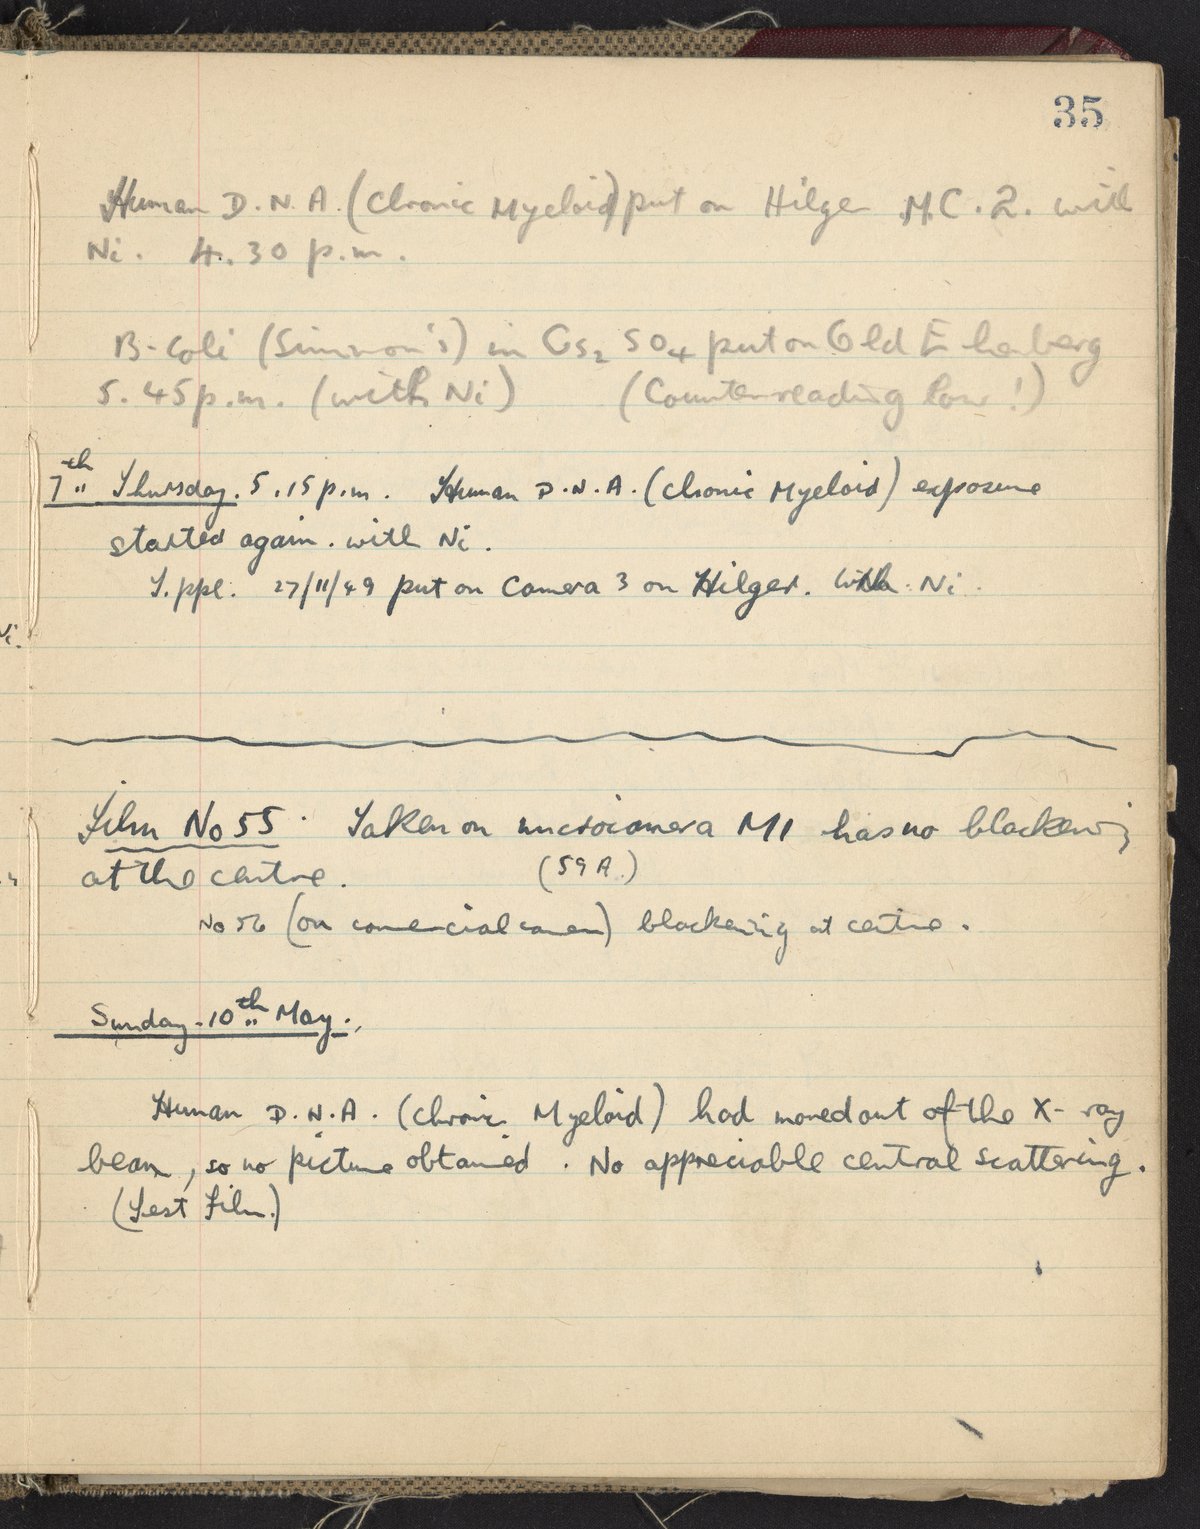 35
Human D.N.A. (Chronic Myeloid) put on Hilger M.C.2. with
Ni. 4.30 p.m.
B-Coli (Simmon's) in Cs2 SO4 put on Old Ehrenberg
5.45 p.m. (with Ni) (Counter reading low!)
7th Thursday. 5.15 p.m. Human D.N.A. (Chronic Myeloid) exposure
started again. with Ni.
T.ppt. 27/11/49 put on Camera 3 on Hilger. with Ni.
Ni.
Film No 55. Taken on microcamera M1 has no blackening
at the centre. (59A.)
No 56 (on comercial camera) blackening at centre.
Sunday - 10th May.
Human D.N.A. (Chronic Myeloid) had moved out of the X-ray
beam, so no picture obtained. No appreciable central scattering.
(Test Film.)